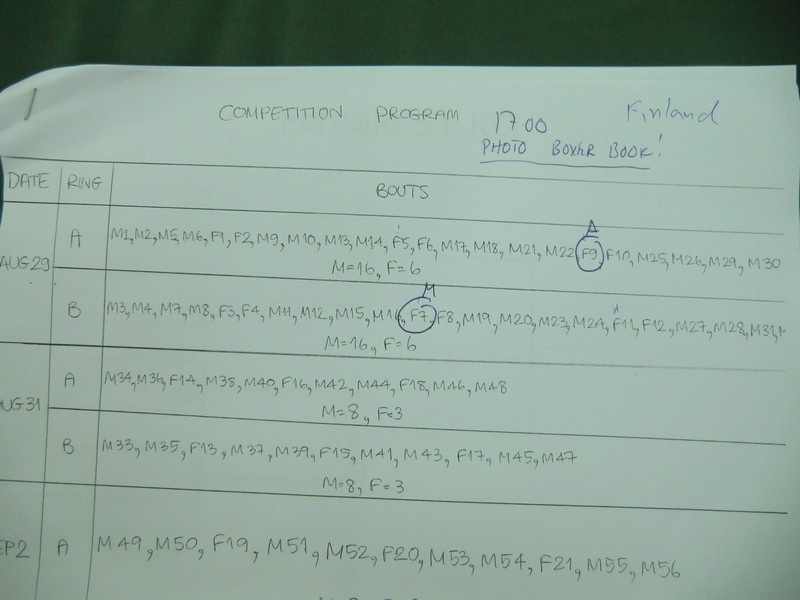 COMPETITION PROGRAM 17 00 Finland
PHOTO BOXHR BOOK!
DATE RING BOUTS
A
A M1, M2, M5, M6, F1, F2, M9, M10, M13, M14, F5, F6, M17, M18, M21, M22, F9, F10, M25, M26, M29, M30
AUG29 M=16, F=6
M
B M3, M4, M7, M8, F3, F4, M11, M12, M15, M16, F7, F8, M19, M20, M23, M24, F11, F12, M27, M28, M31,
M=16, F=6
A M34, M36, F14, M38, M40, F16, M42, M44, F18, M46, M48
UG31 M=8, F=3
B M33, M35, F13, M37, M39, F15, M41, M43, F17, M45, M47
M=8, F=3
EP2 A M49, M50, F19, M51, M52, F20, M53, M54, F21, M55, M56